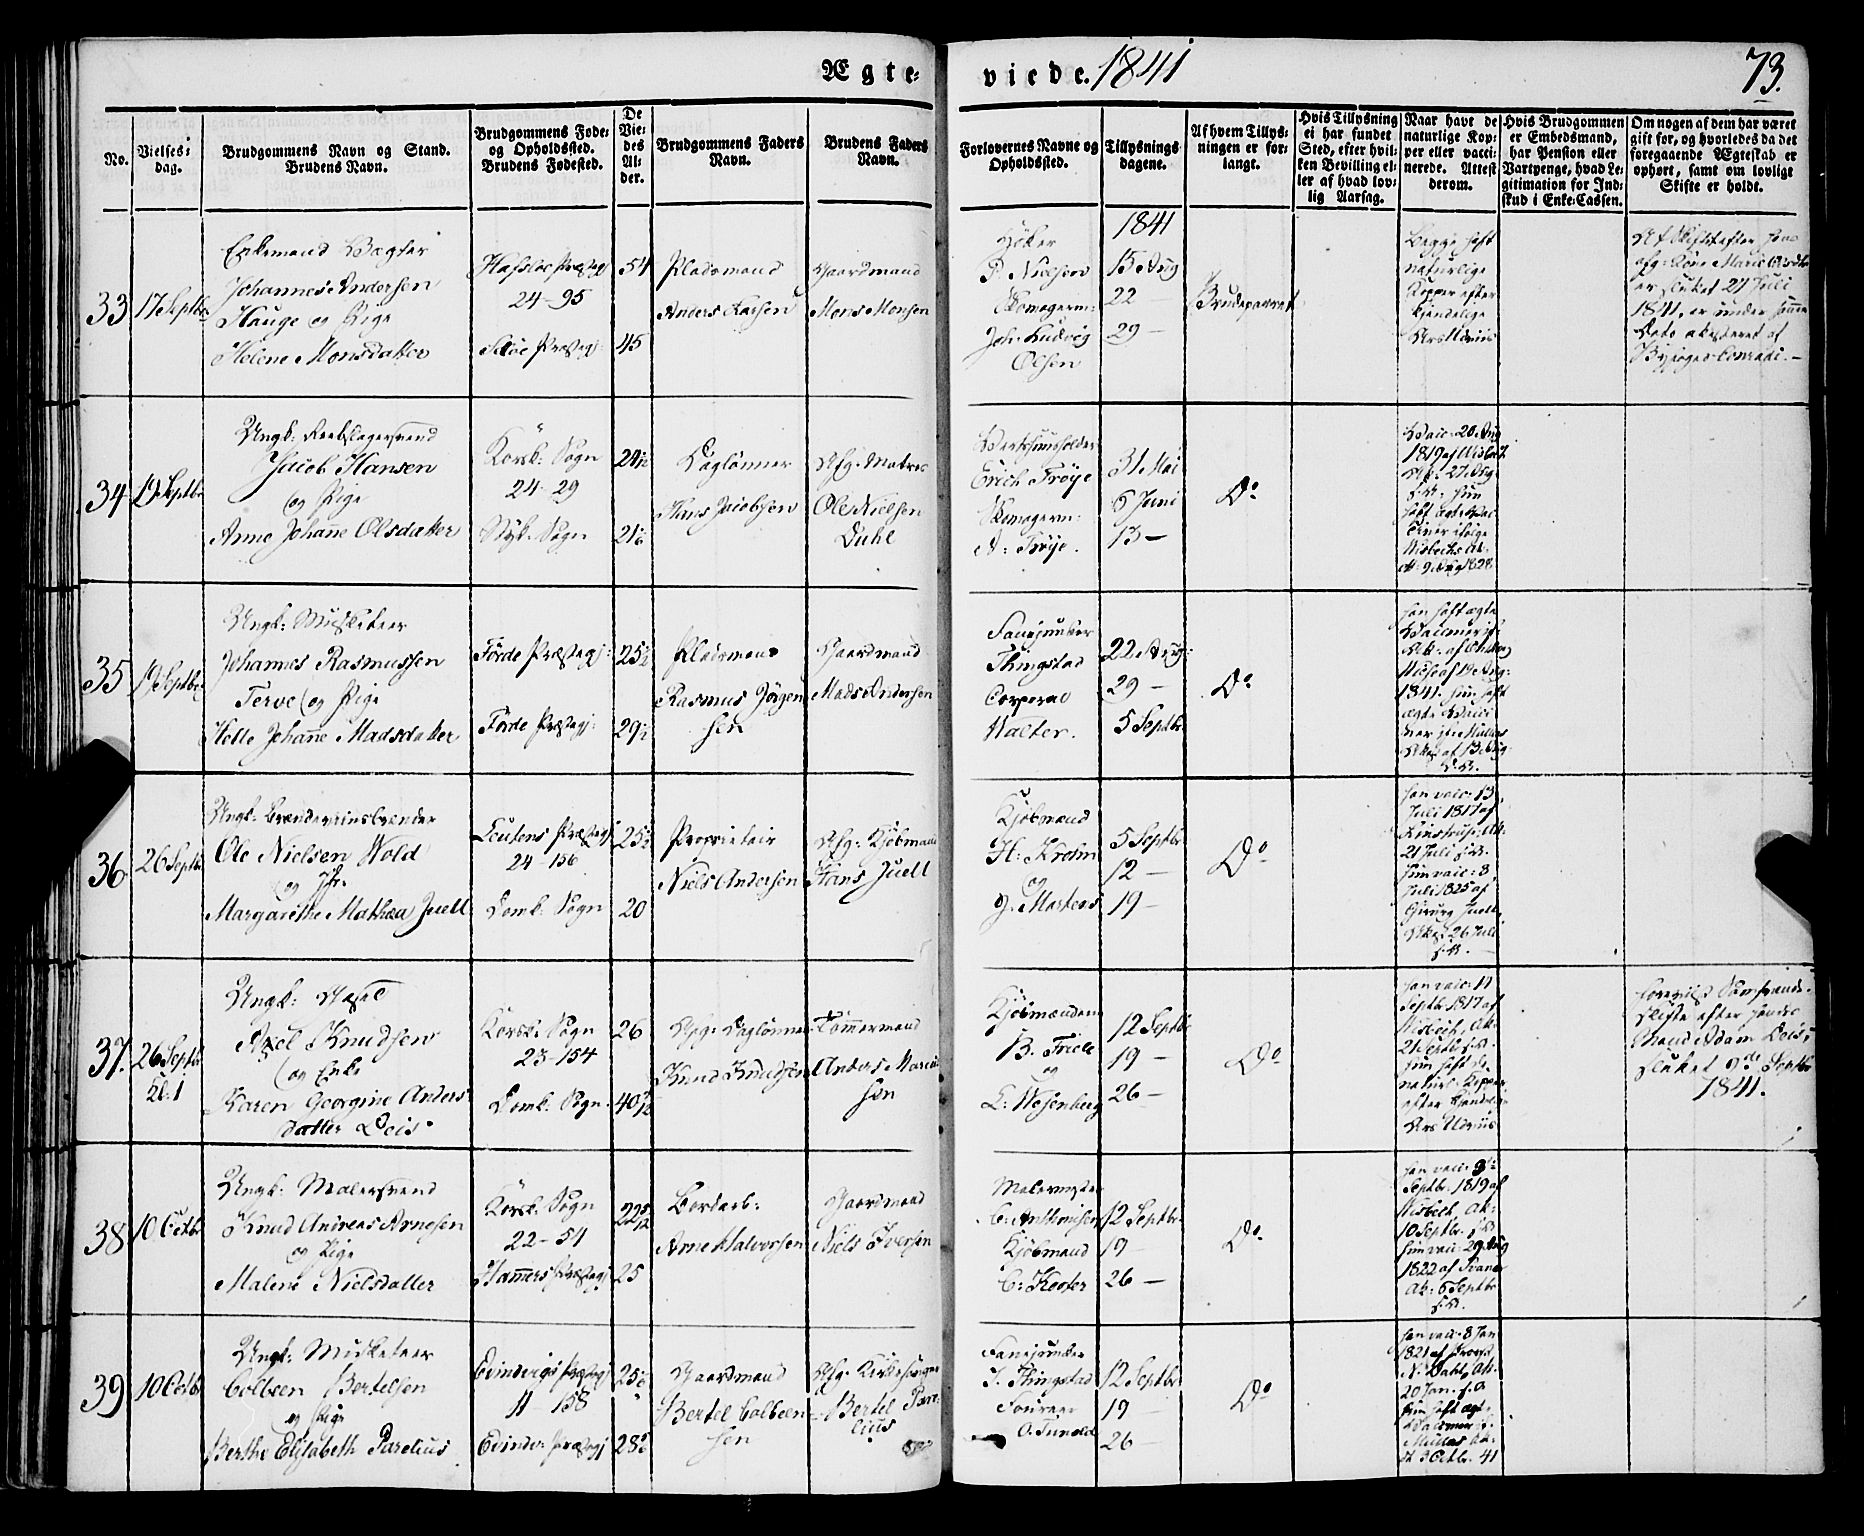 Ægte-
viede. 1841
73.
No.
Vielses-
dag.
Brudgommens Navn og Stand.
Brudens Navn.
Brudgommens Føde-
og Opholdssted.
Brudens Fødested.
De
Vie-
des
Al-
der.
Brudgommens Faders
Navn.
Brudens Faders
Navn.
Forlovernes Navne og
Opholdssted.
Tillysnings
dagene.
Af hvem Tillys-
ningen er for-
langt.
Hvis Tillysning
ei har fundet
Sted, efter hvil-
ken Bevilling el-
ler af hvad lov-
lig Aarsag.
Naar havt de
naturlige Kop-
per eller vacci-
nerede. Attest
derom.
Hvis Brudgommen
er Embedsmand,
har Pension eller
Vartpenge, hvad Le-
gitimation for Ind-
skud i Enke-Cassen.
Om nogen af dem har været
gift før, og hvorledes da det
foregaaende Ægteskab er
ophørt, samt om lovligt
Skifte er holdt.
33
17 Septbr
Enkemand
Johannes Andersen
Hauge og Pige
Helene Monsdatter
Hafsloe Præstegj
24-95
Præstegj:
54
45
Pladsmand
Anders
Gaardmand
Mons Monsen
Høker
P. Nielsen
Skomagerm:
Joh: Ludvig
Olsen
1841
15 Aug
22
29 —
Brudeparret
Begge havt
naturlige
Kopper efter
kjendelige
afg: Kone Marie
er sluttet 27 Juli
1841, er under
Dato attesteret af
Byfoged Conradi. —
34
19 Septbr
Ungk: Reebslagersvend
Jacob Hansen
og Pige
Anne Johane Olsdatter
Korsk: Sogn
24-29
Nyk: Sogn
Daglønner
Hans Jacobsen
Afg: Matros
Ole Nielsen
Duhl
Erich Trøye
Skomagerm:
A: Trøye.
31 Mai
6 Juni
13 —
Do
Vacc: 20 Aug
1819 af Wisbech
Att: 27 Aug
s: A: hun
35
19 Septbr
Ungk: Musketeer
Johannes Rasmussen
Terve og Pige
Helle Johane Madsdatter
Førde Præstegj:
Førde Præstegj:
Pladsmand
Rasmus Jørgen
sen
Gaardmand
Mads Andersen
Fanejunker
Thingstad
Corporal
Walter.
22 Aug:
29 —
5 Septbr
Do
han havt ægte
af 19 Aug:
1841. hun havt
ægte
af 13 Aug
36
26 Septbr
Ungk: Brændeviinsbrænder
Ole Nielsen Wold
og Jfr.
Margarethe Mathea Juell
Leutens Præstegj
24-156
Domk: Sogn
20
Proprietair
Niels Andersen
Afg: Kjøbmand
Hans Juell
Kjøbmand
H: Krohn
og
J. Martens
5 Septbr
12 —
19 —
Do
han vacc: 13
Juli 1817 af
21 Juli s: A:
hun vacc: 8
Juli 1825 af
Juell,
26 Juli
s: A:
37.
26 Septbr
Kl: 1
Ungk:
Axel Knudsen
og Enke
Karen Georgine Anders
datter Deis
Korsk: Sogn
23-154
Domk: Sogn
26
Afg: Daglønner
Knud Knudsen
Tømmermand
Anders Marcus
sen
Kjøbmændene
B. Friele
og
L: Wesenberg
12 Septbr
19 —
26 —
Do
han vacc: 11
Septbr 1817 af
Wisbech, Att:
21 Septbr s: A:
hun havt de
naturl: Kopper
efter kjendel:
skifte efter hendes
Mand Adam Deis,
sluttet 9de Septbr
1841.
38
10 Octbr
Ungk: Malersvend
Knud Andreas Arnesen
og Pige
Malene Nielsdatter
Korsk: Sogn
22-51
Hammers Præstegj
25
Bordarb:
Arne Halvorsen
Gaardmand
Niels Iversen
Malermester
C: Anthonisen
Kjøbmand
C: Kester
12 Septbr.
19 —
26 —
Do
han vacc: 3
Septbr: 1819 af
Wisbech, Att:
10 Septbr: s: A:
hun vacc: 29 Aug
1822 af
Att: 6 Septbr
s: A:
39
10 Octbr
Ungk: Musketeer
Colbeen Bertelsen
og Pige
Berthe Elisabeth Parelius
Evindvigs Præstegj
11-158
Evindv: Præstegj
Gaardmand
Bertel Colbeen
sen
Afg: Kirkesanger
Bertel Pare-
lius
Fanejunker
J. Thingstad
Fourer
O. Tunold
12 Septbr
19 —
26 —
Do
han vacc: 8 Jan
1821 af Provst
N: Dahl, Att:
20 Jan. s: A
hun havt ægte
3 Octbr. 41